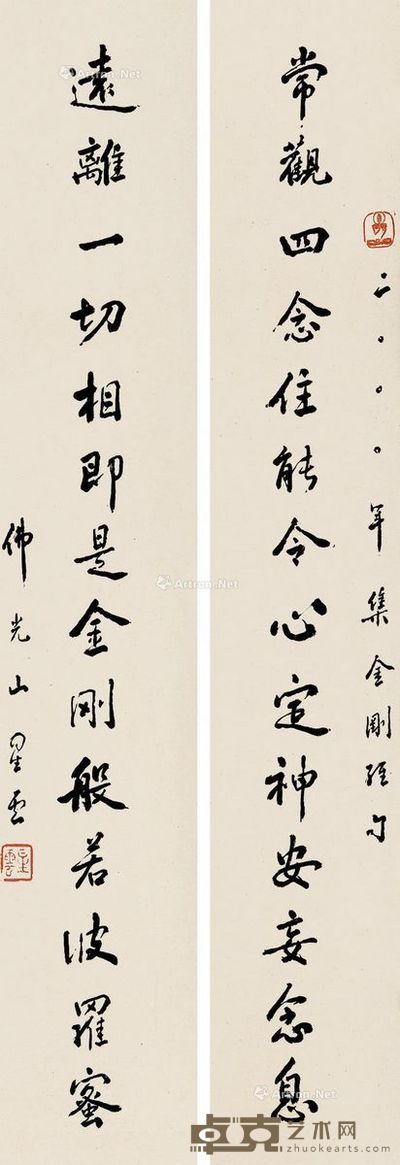 二〇〇〇年集金剛經句
常觀四念住能令心定神安妄念息
遠離一切相即是金剛般若波羅蜜
佛光山星雲
星雲
Artron.Net
Artron.Net
Artron.Net
Artron.Net
卓克艺术网
zhuokearts.com